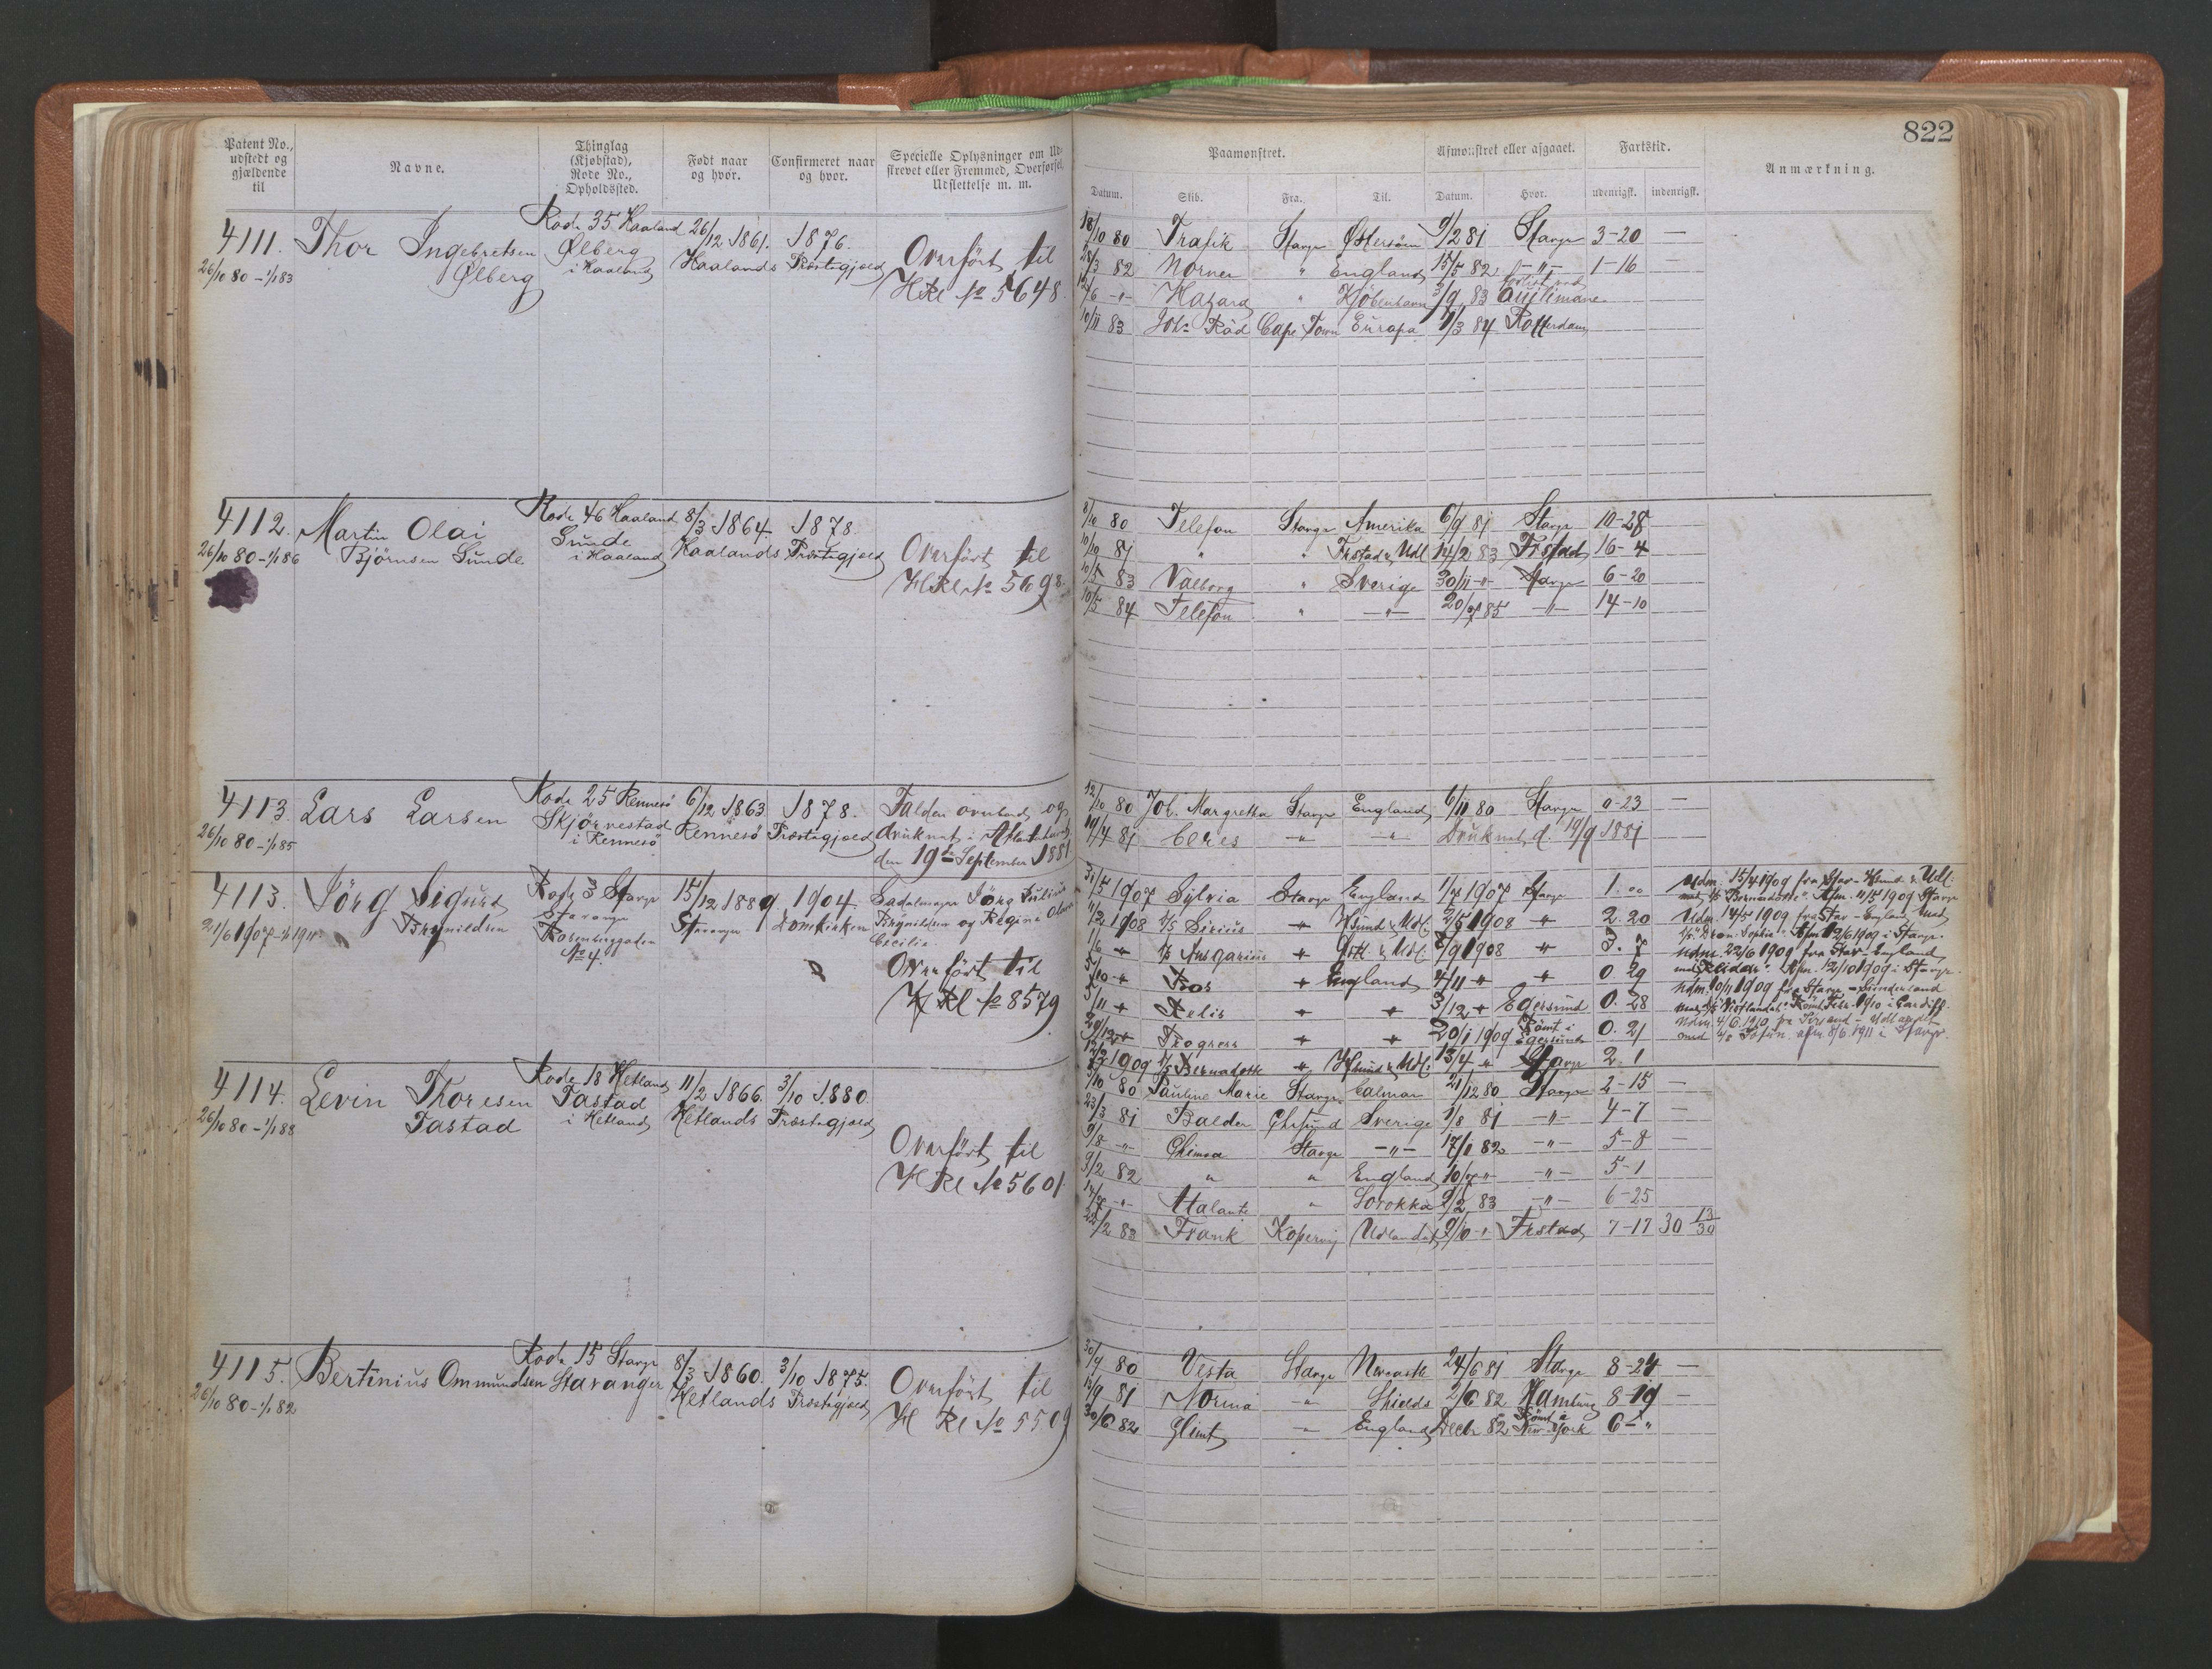 822
Patent No., udstedt og gjældende til
Navne.
Thinglag (Kjøbstad), Rode No., Opholdssted.
Født naar og hvor.
Confirmeret naar og hvor.
Specielle Oplysninger om Ud-
strevet eller Fremmed, Overførsel,
Udslettelse m. m.
Paamønstret.
Afmønstret eller afgaaet.
Fartstid.
Anmærkning.
Datum. Skib. Fra. Til. Datum. Hvor. udenrigsk. indenrigsk.
4111. Thor Ingebretsen Ølberg
26/10 80 - 1/1 83
Rode 35 Haaland Ølberg i Haaland
26/12 1861. Haalands
1876. Præstegjæld
Overført til
HRl No 5648.
18/10 80 Trafik Stavgr Østersøen 9/2 81 Stavgr 3-20 —
28/3 82 Norner " England 15/5 82 -"- 1-16 —
12/6 -"- Hazard " Kjöbenhavn 3/9 83 forlist ved Quilimane
10/11 83 Joh: Räd Cape Town Europa 9/3 84 Rotterdam
4112. Martin Olai Bjørnsen Sunde
26/10 80 - 1/1 86
Rode 46 Haaland Sunde i Haaland
8/3 1864. Haalands
1878. Præstegjæld
Overført til
HRl No 5698.
8/10 80 Telefon Stavgr Amerika 6/9 81 Stavgr 10-28
10/10 81 " " Frstad & Udl 14/2 83 Frstad 16-4
10/5 83 Valborg " Sverige 30/11 -"- Stavgr 6-20
10/5 84 Telefon " -"- 20/7 85 -"- 14-10
4113. Lars Larsen
26/10 80 - 1/1 85
Rode 25 Rennesö Skjørnestad i Rennesö
6/12 1863 Rennesö
1878. Præstegjæld
Falden overbord og
druknet i Atlanterhavet
den 19de September 1881
12/10 80 Joh. Margretha Stavgr England 6/11 80 Stavgr 0-23 —
19/4 81 Ceres -"- -"- Druknet d. 19/9 1881
4113. Jörg Sigurd Brynildsen
21/6 1907 - 1/1 1911
Rode 3 Stavgr Stavanger Rosenberggaden No 4.
15/12 1889. Stavanger
1904. Domkirken
Sadelmager Jörg Julius
Brynildsen og Regine Olava
Cecilie
Overført til
H Rl No 8579
31/5 1907 Sylvia Stavgr England 1/7 1907 Stavgr 1.00
11/2 1908 D/S Sirius " Hsund & Udl. 2/5 1908 " 2.20
1/6 " D/S Ansgarius " Gotl. & Udl. 7/9 1908 " 3.7
5/10 " Roos " England 4/11 " " 0.29
5/11 " Relis " " 3/12 " Egersund 0.28
29/12 " Progress " " 20/1 1909 Rømt i Egersund 0.21
12/2 1909 D/S Bernadotte " Hsund & Udl. 13/4 " Stavgr 2.1
Udm. 15/4 1909 fra Stav - Hsund & Udl.
med D/S Bernadotte. Afm. 11/5 1909 Stavgr
Udm. 14/5 1909 fra Stav - England med
D/S Dron. Sophie. Afm. 12/6 1909 i Stavgr.
Udm. 22/6 1909 fra Stav - England
Afm. 12/10 1909 i Stavgr.
Udm. 10/11 1909 fra Stavgr - Sunderland
med D/S Vestlandet. Rømt Febr. 1910 i Cardiff.
Udm. 4/6 1910 fra - Udlandet
med afm. 8/6 1911 i Stavgr.
4114. Levin Thoresen Tastad
26/10 80 - 1/1 88
Rode 18 Hetland Tastad i Hetland
11/2 1866. Hetlands
3/10 1880. Præstegjæld
Overført til
H Rl No 5601.
9/10 80 Pauline Marie Stavgr Calmar 21/12 80 Stavgr 2-15 —
23/3 81 Balder Chrsund Sverige 1/8 81 -"- 4-7 —
9/8 -"- Chimæra Stavgr -"- 17/1 82 -"- 5-8 —
9/2 82 " " England 10/7 " -"- 5-1
14/7 -"- Atalante " Sorokka 9/2 83 -"- 6-25
22/2 83 Frank Kopervig Udlandet 9/10 -"- Frstad 7-17 30 13/30
4115. Bertinius Ommundsen
26/10 80 - 1/1 82
Rode 15 Stavgr Stavanger
8/3 1860. Hetlands
3/10 1875. Præstegjæld
Overført til
H Rl No 5509
30/9 80 Vesta Stavgr Newcastle 24/6 81 Stavgr 8-24 —
13/9 81 Norma -"- Shields 2/6 82 Hamburg 8-19 —
30/6 82 Glimt -"- England Decbr 82 Rømt i New York 6-"